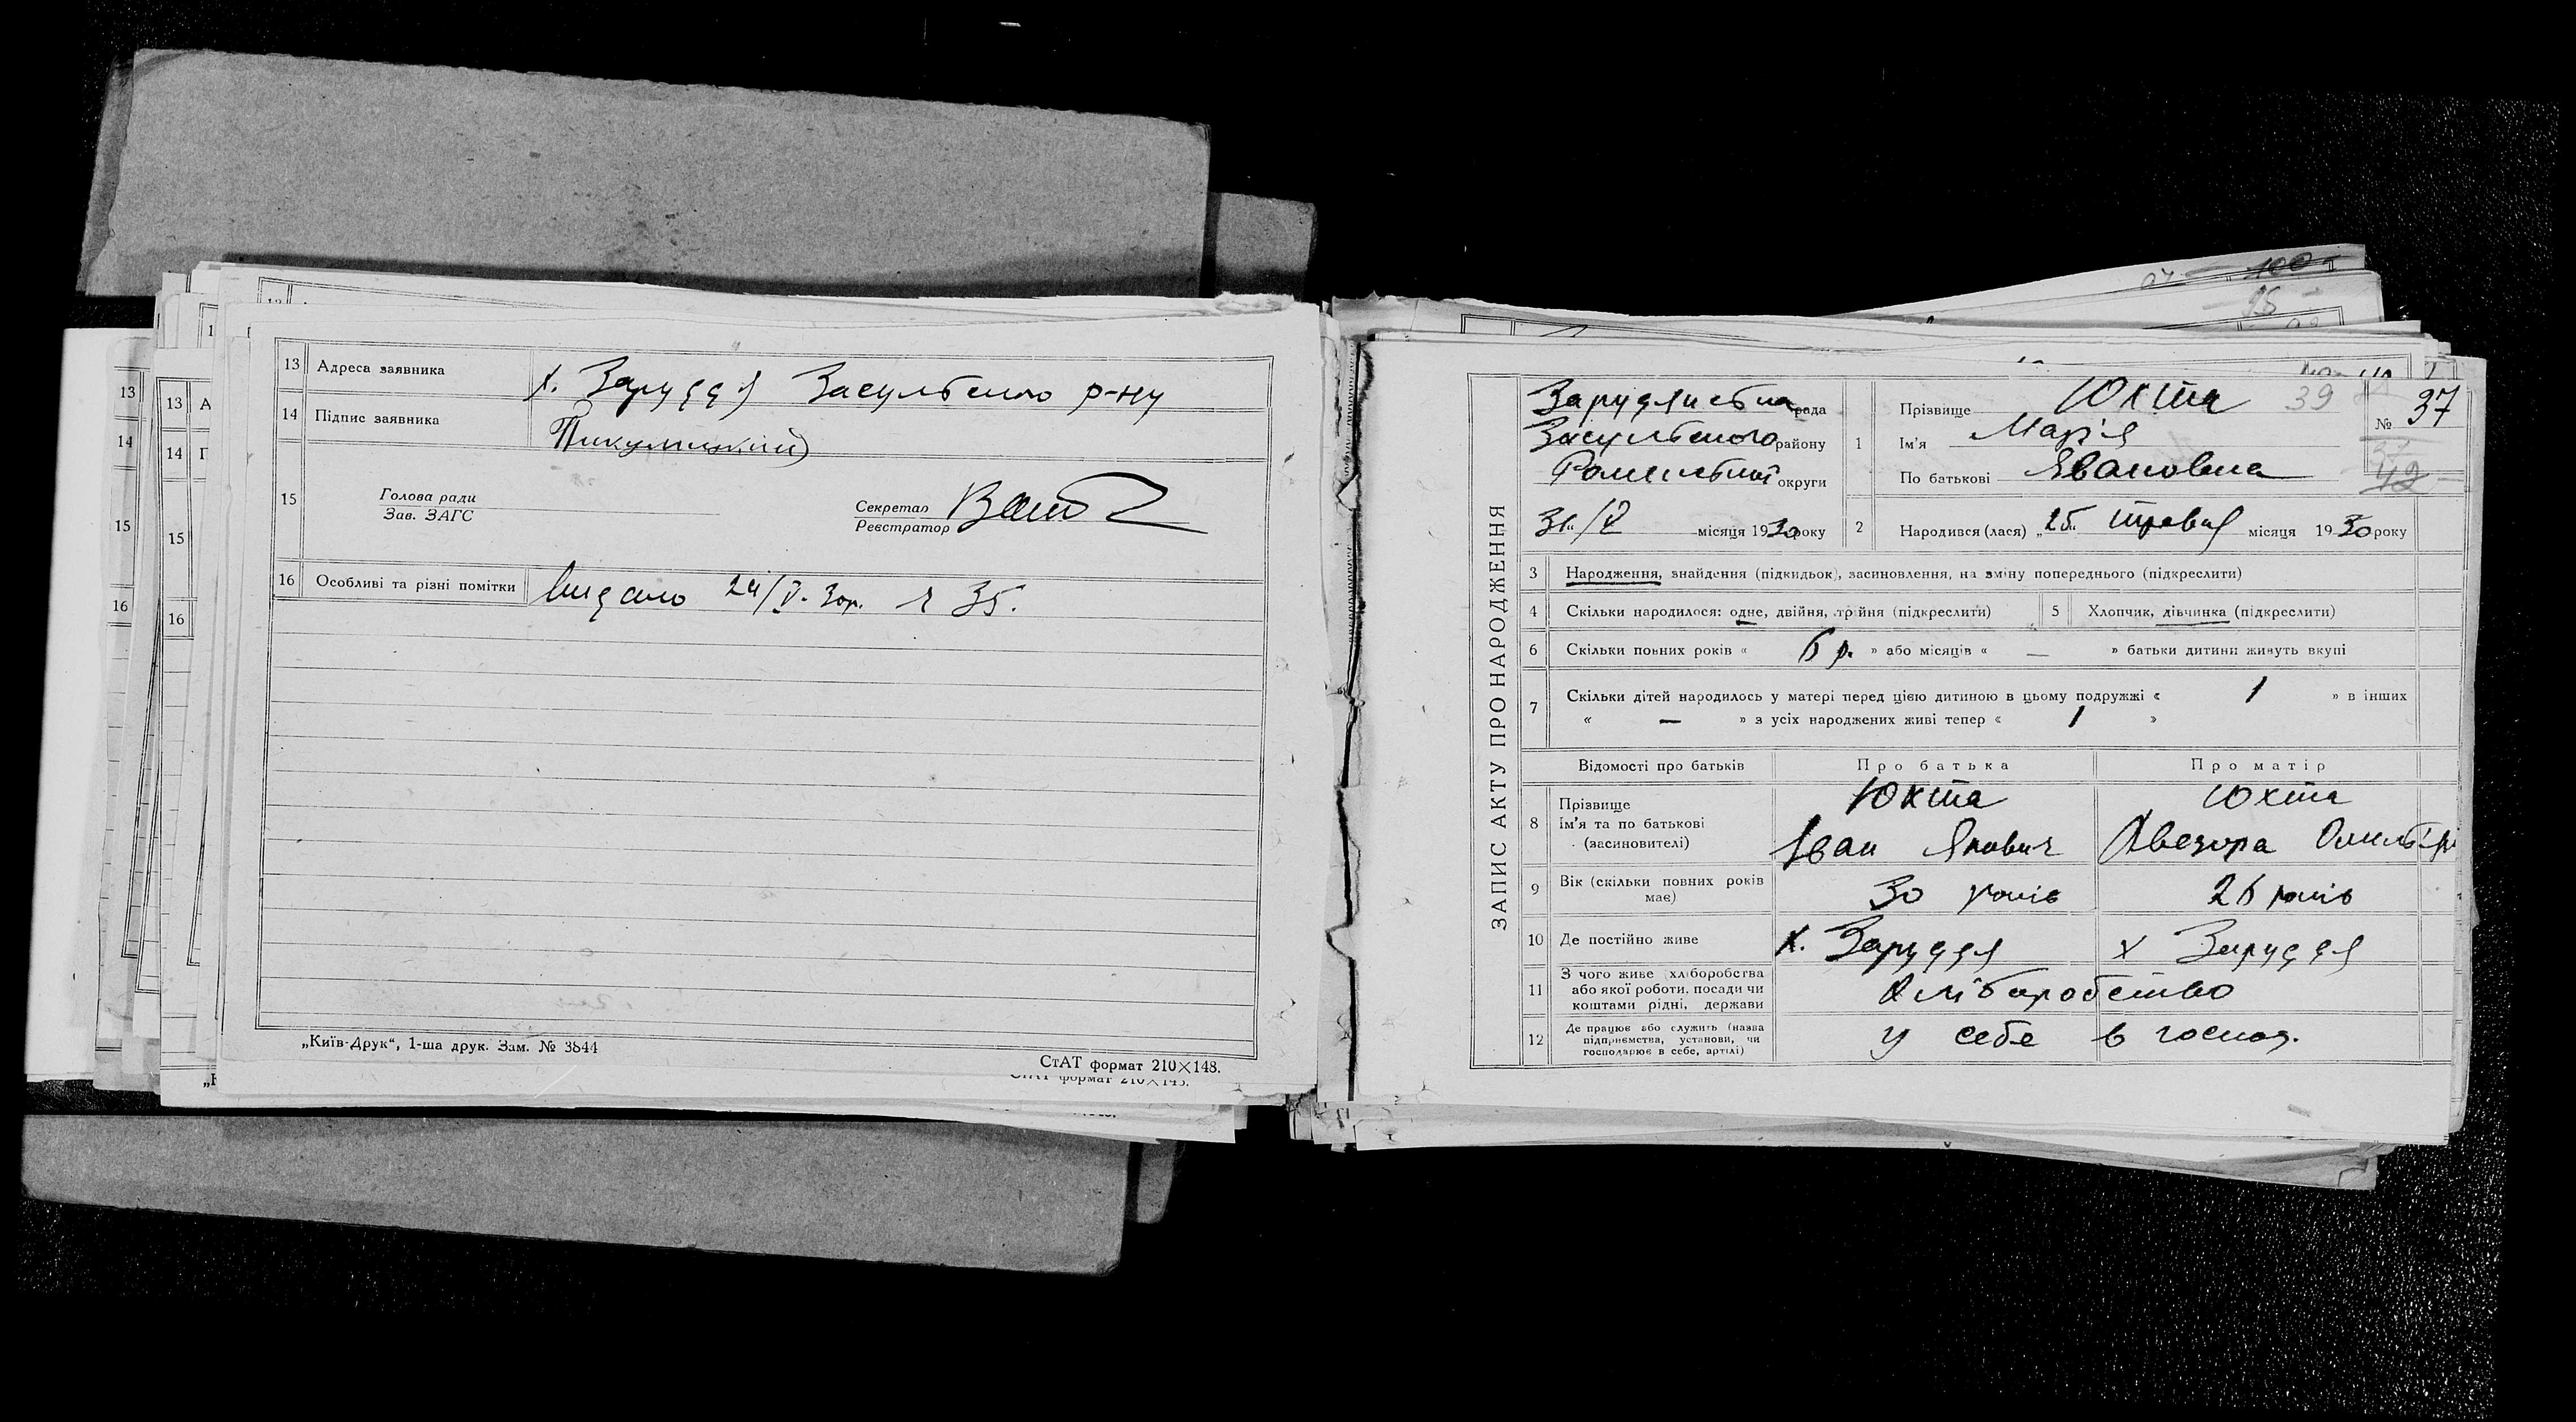 13 Адреса заявника х. Заруддя Засульського р-ну
14 Підпис заявника
15 Голова ради
Зав. ЗАГС
Секретар
Реєстратор
16 Особливі та різні помітки Видано 24/V-30р. № 35.
„Київ-Друк“, 1-ша друк. Зам. № 3844
СтАТ формат 210×148.
ЗАПИС АКТУ ПРО НАРОДЖЕННЯ
Заруднянська рада
Засульського району
Роменської округи
31/V місяця 1930 року
№ 37
39
1 Прізвище Юхта
Ім'я Марія
По батькові Івановна
2 Народився (лася) „25“ травня місяця 1930 року
3 Народження, знайдення (підкидьок), засиновлення, на зміну попереднього (підкреслити)
4 Скільки народилося: одне, двійня, трійня (підкреслити) 5 Хлопчик, дівчинка (підкреслити)
6 Скільки повних років « 6 р. » або місяців « — » батьки дитини живуть вкупі
7 Скільки дітей народилось у матері перед цією дитиною в цьому подружжі « 1 » в інших
« — » з усіх народжених живі тепер « 1 »
Відомості про батьків Про батька Про матір
8 Прізвище
Ім'я та по батькові
(засиновителі)
Юхта
Іван
Юхта
9 Вік (скільки повних років має) 30 років 26 років
10 Де постійно живе х. Заруддя х Заруддя
11 З чого живе (хліборобства або якої роботи, посади чи коштами рідні, держави Хліборобство
12 Де працює або служить (назва підприємства, установи, чи господарює в себе, артілі) У себе в господ.